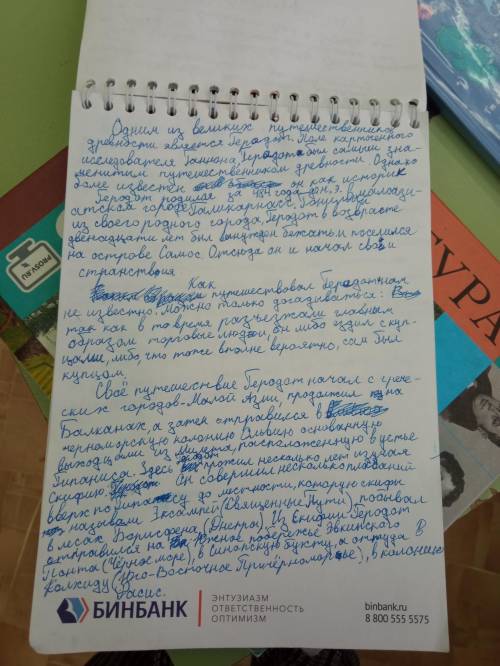 Одним из великих путешественников
древности является Геродот. После карфагенского
исследователя Ганнона, Геродот был самым зна-
менитым путешественником древности. Однако
более известен он как историк
Геродот родился за 484 года до н. э. в малоази-
атском городе Галикарнасс.
из своего родного города. Геродот в возрасте
двенадцати лет был вынужден бежать, и поселился
на острове Самос. Отсюда он и начал свои
странствия
Как путешествовал Геродот нам
не известно. Можно только догадываться:
так как в то время разъезжали главным
образом торговые люди он либо ездил с куп-
цами, либо что тоже вполне вероятно, сам был
купцом.
Своё путешествие Геродот начал с грече-
ских городов Малой Азии, продолжил на
Балканах, а затем отправился в
черноморскую колонию Ольвию основанную
выходцами из Милета, расположенную в устье
Гипаниса. Здесь прожил несколько лет изучая
Скифию. Он совершил несколько плаваний
вверх по Гипанису до местности, которую скифы
называли Эксампей (Священные Пути), побывал
в лесах Борисфена (Днепра). Из Скифии Геродот
отправился на Южное побережье Эвксинского
Понта (Чёрное море), в Синопскую бухту, а оттуда в
Колхиду (Юго-Восточное Причерноморье), в колонию
Фасис.
БИНБАНК
ЭНТУЗИАЗМ
ОТВЕТСТВЕННОСТЬ
ОПТИМИЗМ
binbank.ru
8 800 555 5575
PROSV.RU
ТУРА